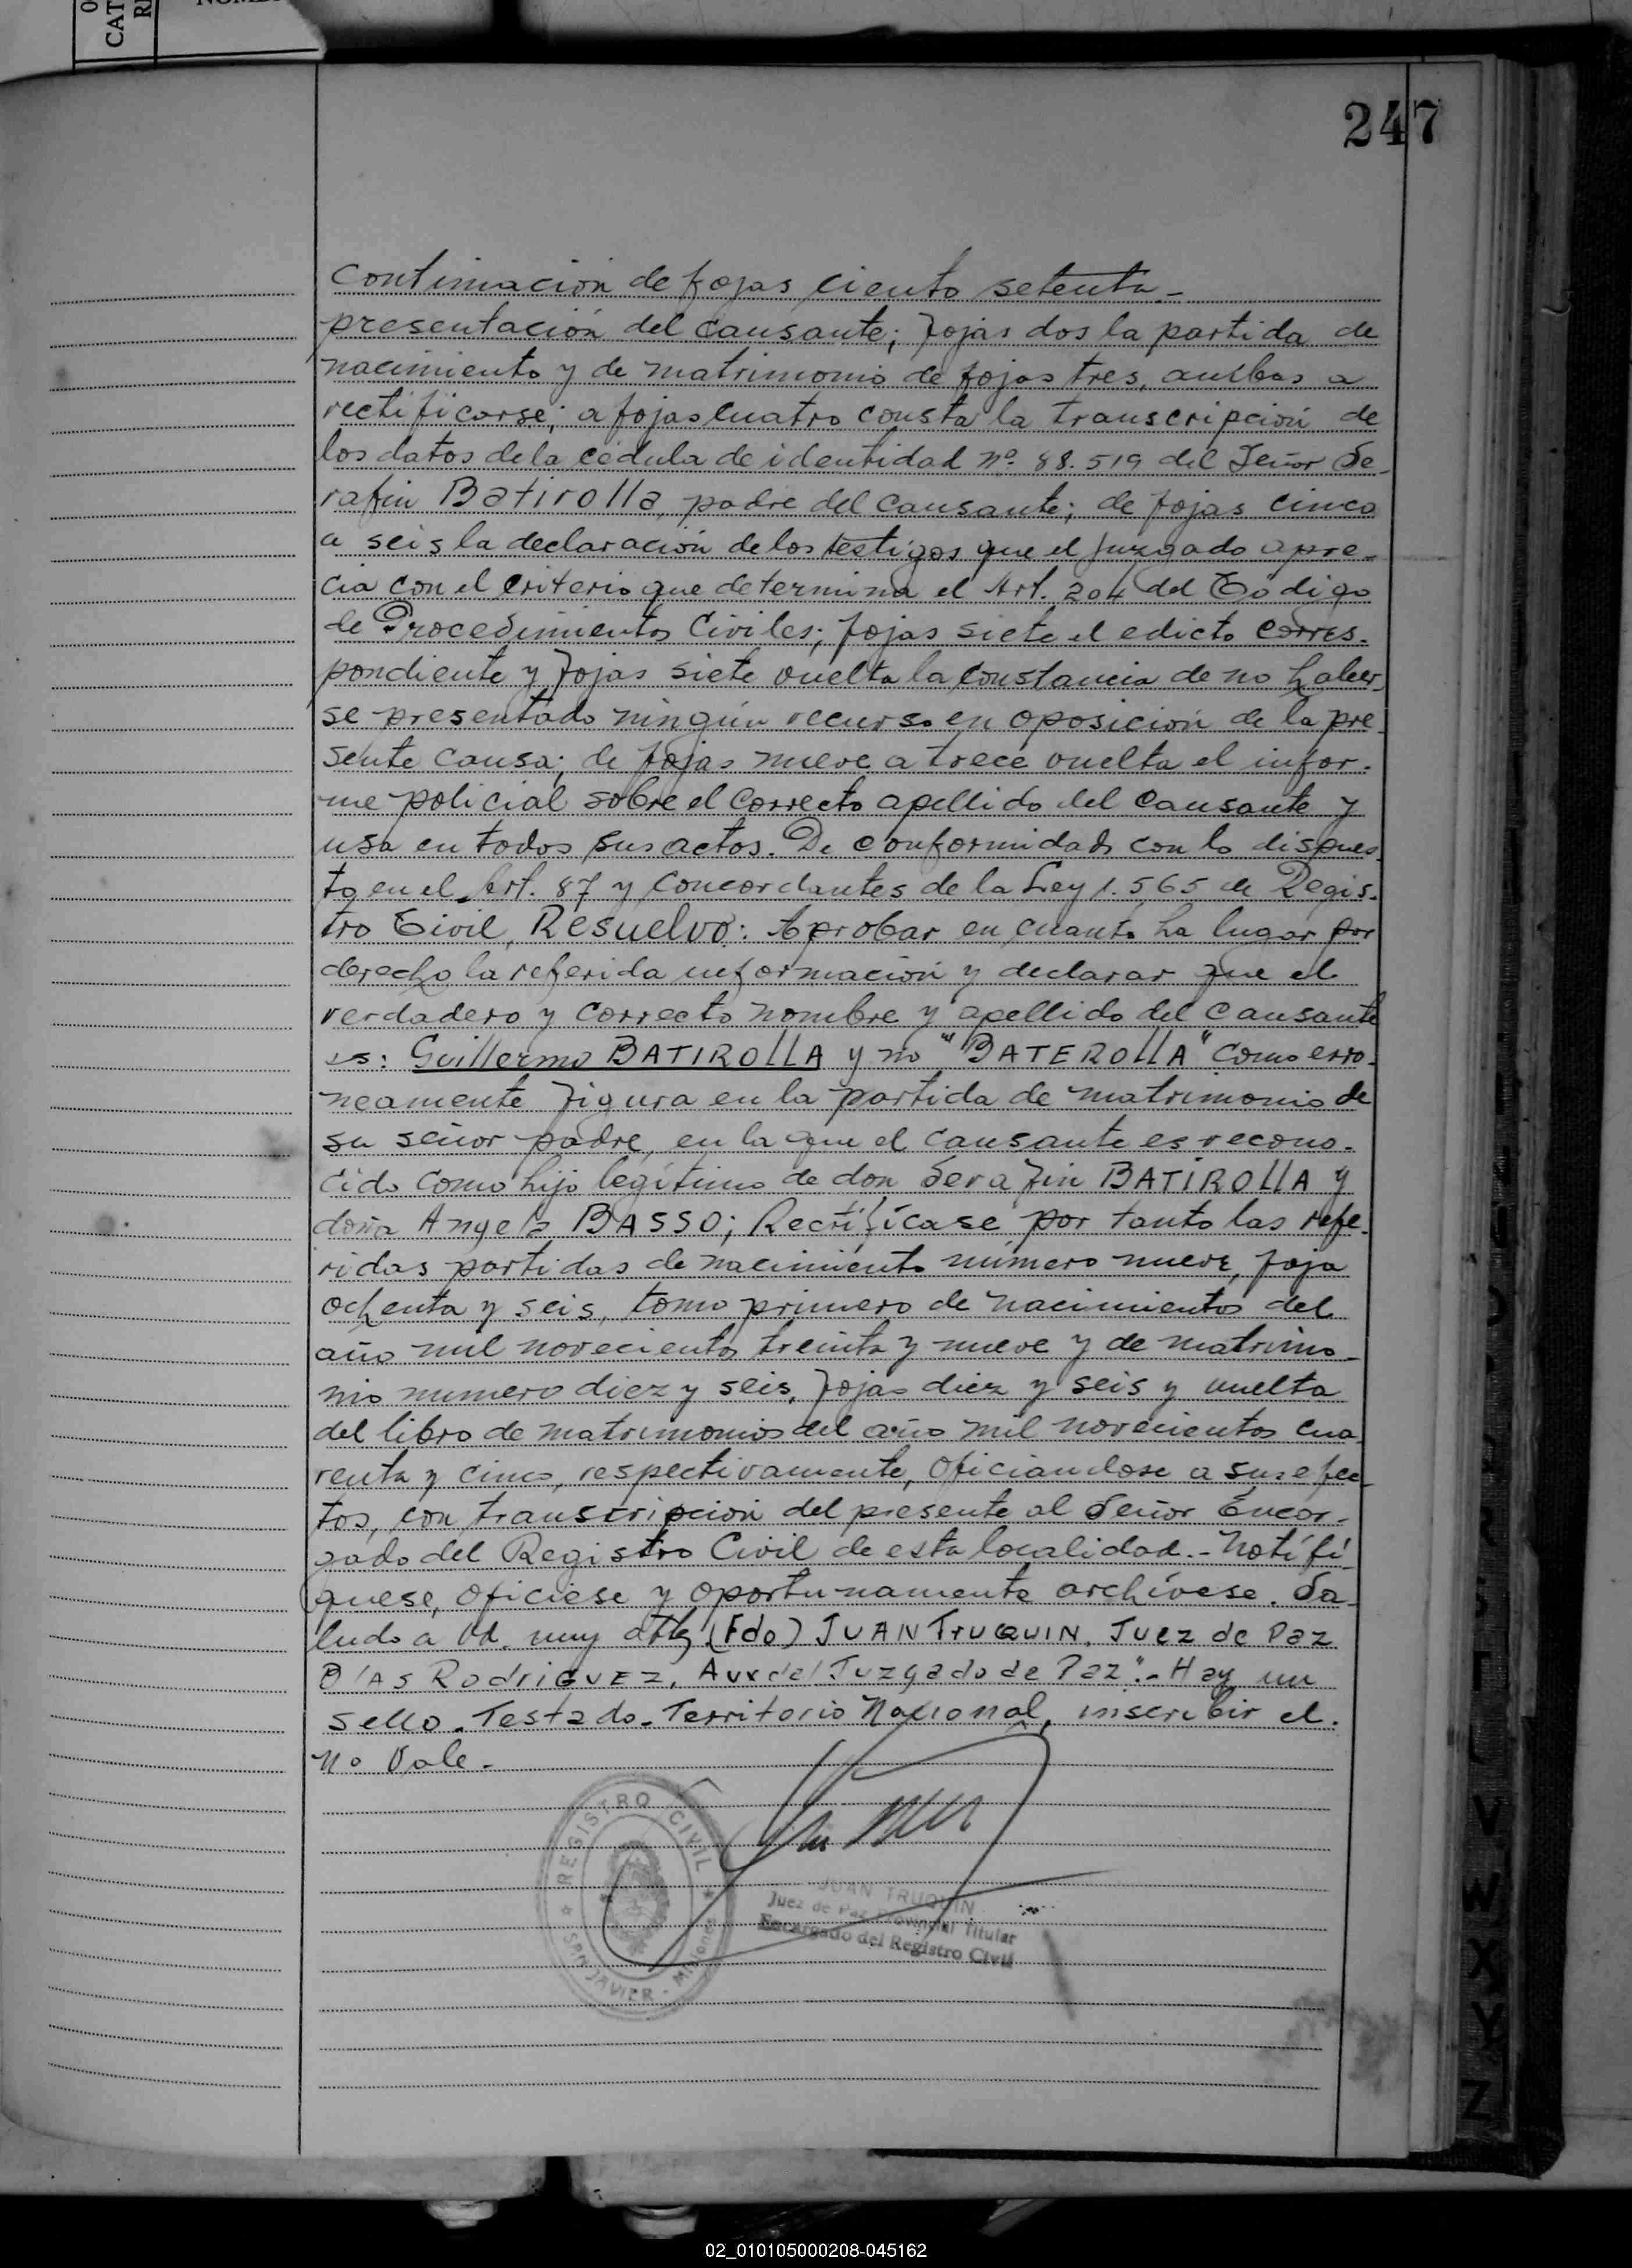 247
Continuación de fojas ciento setenta -
presentación del causante; fojas dos la partida de
nacimiento y de matrimonio de fojas tres, ambas a
rectificarse; a fojas cuatro consta la transcripción de
los datos de la cédula de identidad nº 88.519 del Señor Se-
rafin Batirolla, padre del causante; de fojas cinco
a seis la declaración de los testigos que el juzgado apre-
cia con el criterio que determina el Art. 204 del Código
de Procedimientos Civiles; fojas siete el edicto corres-
pondiente y fojas siete vuelta la constancia de no haber-
se presentado ningún recurso en oposición de la pre-
sente causa; de fojas nueve a trece vuelta el infor-
me policial sobre el correcto apellido del causante y
usa en todos sus actos. De conformidad con lo dispues-
to en el Art. 87 y concordantes de la Ley 1.565 de Regis-
tro Civil, Resuelvo: Aprobar en cuanto ha lugar por
derecho la referida información y declarar que el
verdadero y correcto nombre y apellido del causante
es: Guillermo BATIROLLA y no "BATEROLLA" como erro-
neamente figura en la partida de matrimonio de
su señor padre, en la que el causante es recono-
cido como hijo legítimo de don Serafin BATIROLLA y
doña Angela BASSO; Rectifícase por tanto las refe-
ridas partidas de nacimiento número nueve, foja
ochenta y seis, tomo primero de nacimientos del
año mil novecientos treinta y nueve y de matrimo-
nio numero diez y seis, fojas diez y seis y vuelta
del libro de matrimonios del año mil novecientos cua-
renta y cinco, respectivamente, oficiandose a sus efec-
tos, con transcripción del presente al Señor Encar-
gado del Registro Civil de esta localidad.- Notifí-
quese, ofíciese y oportunamente archívese. Sa-
ludo a Ud. muy atte (Fdo) JUAN TRUQUIN. Juez de Paz
RODRIGUEZ, Aux del Juzgado de Paz".- Hay un
sello. Testado. Territorio Nacional, inscribir el.
No Vale.-
REGISTRO CIVIL
SAN JAVIER - Misiones
JUAN TRUQUIN
Juez de Paz Provincial Titular
Encargado del Registro Civil
V
W
X
Y
Z
02_010105000208-045162